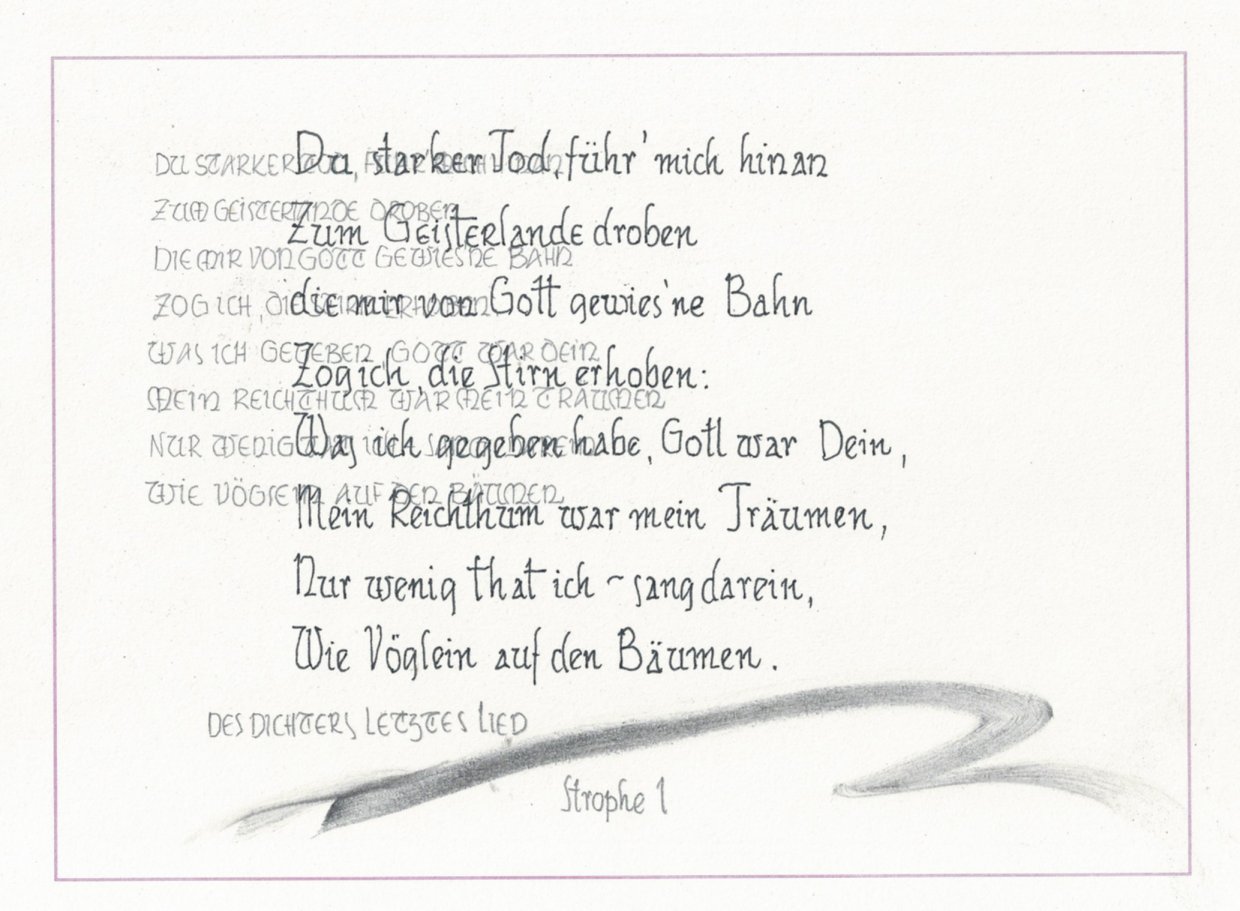 Du starker Tod, führ' mich hinan
Zum Geisterlande droben
die mir von Gott gewies'ne Bahn
Zog ich, die Stirn erhoben:
Was ich gegeben habe, Gott war Dein,
Mein Reichthum war mein Träumen,
Nur wenig that ich ~ sang darein,
Wie Vöglein auf den Bäumen.
DU STARKER TOD, FÜHR' MICH HINAN
ZUM GEISTERLANDE DROBEN
DIE MIR VON GOTT GEWIES'NE BAHN
ZOG ICH, DIE STIRN ERHOBEN
WAS ICH GEGEBEN, GOTT WAR DEIN
MEIN REICHTHUM WAR MEIN TRÄUMEN
NUR WENIG
WIE VÖGLEIN AUF DEN BÄUMEN
DES DICHTERS LETZTES LIED
Strophe 1